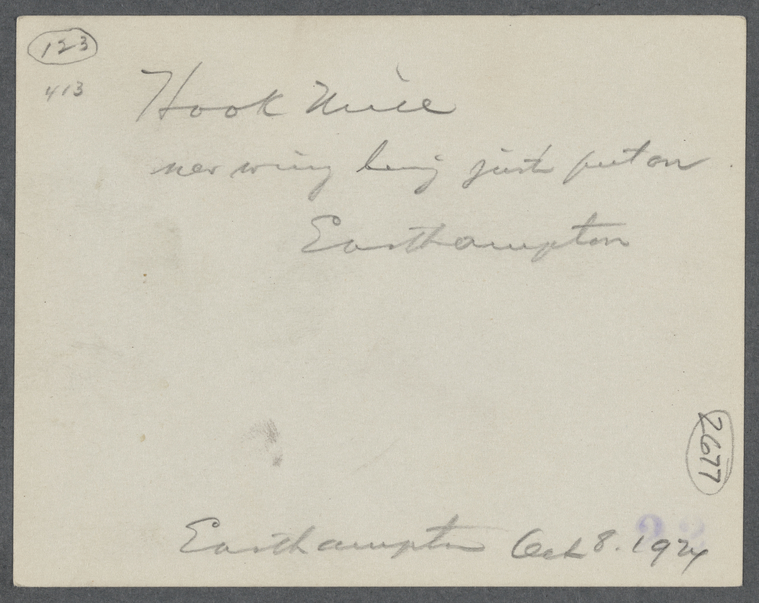 123
413
Hook Mill
new wing being just put on
Easthampton
2677
Easthampton Oct 8. 1924